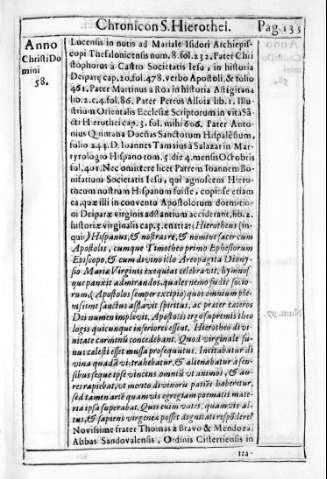 Chronicon S. Hierothei. Pag. 135
Anno
Christi Do
mini
58.
Lucensis in notis ad Mariale Isidori Archiepis-
copi Thessalonicensis num. 8. fol. 232. Pater Chri
stophorus à Castro Societatis Iesu, in historia
Deiparæ cap. 20. fol. 478. verbo Apostoli, & folio
461. Pater Martinus a Roa in historia Astigitana
lib. 2. c. 4. fol. 86. Pater Petrus Alloia lib. 1. Illu-
strium Orientalis Ecclesiæ Scriptorum in vita Sã
cti Hierothei cap. 3. fol. mihi 606. Pater Anto-
nius Quintana Dueñas Sanctorum Hispalẽsium,
folio 244. D. Ioannes Tamaius à Salazar in Mar-
tyrologio Hispano tom. 5. die 4. mensis Octobris
fol. 401. Nec omittere licet Patrem Ioannem Bo-
nifatium Societatis Iesu, qui agnoscens Hiero-
theum nostrum Hispanum fuisse, copiose etiam
ea, quæ illi in conventu Apostolorum dormitio-
ni Deiparæ virginis adstantium acciderant, lib. 2.
historiæ virginalis cap. 3. enarrat: Hierotheus (in-
quit) Hispanus, & nostras re, & nomine sacer cum
Apostolis, cumque Timotheo primo Ephesiorum
Episcopo, & cum divino illo Areopagita Diony-
sio Mariæ Virginis exequias celebravit, hymnos
que panxit admirandos, quales nemo fudit socio
rum, (Apostolos semper excipio) quos omnium ple-
nissime sanctus afflavit spiritus, ac præter cæteros
Dei numen implevit. Apostolis ergo supremis theo
logis quicunque inferiores essent. Hierotheo divi-
nitate carminũ concedebant. Quod virginale fu-
nus cælesti esset musa prosequutus. Incitabatur di
vina quadã vi, trahebatur, & alienabatur à sen-
sibus seque ipse vincens omniũ vt animos, & au-
res rapiebat, vt merito divinorũ patiẽs haberetur,
sed tamen artẽ quamvis egregiam poematis mate
ria ipsa superabat. Quis enim vates, quamvis al-
tus, & sapiens virgineæ posset dignitati respõdere?
Novissime frater Thomas à Bravo & Mendoza
Abbas Sandovalensis, Ordinis Cisterciensis in
tra-